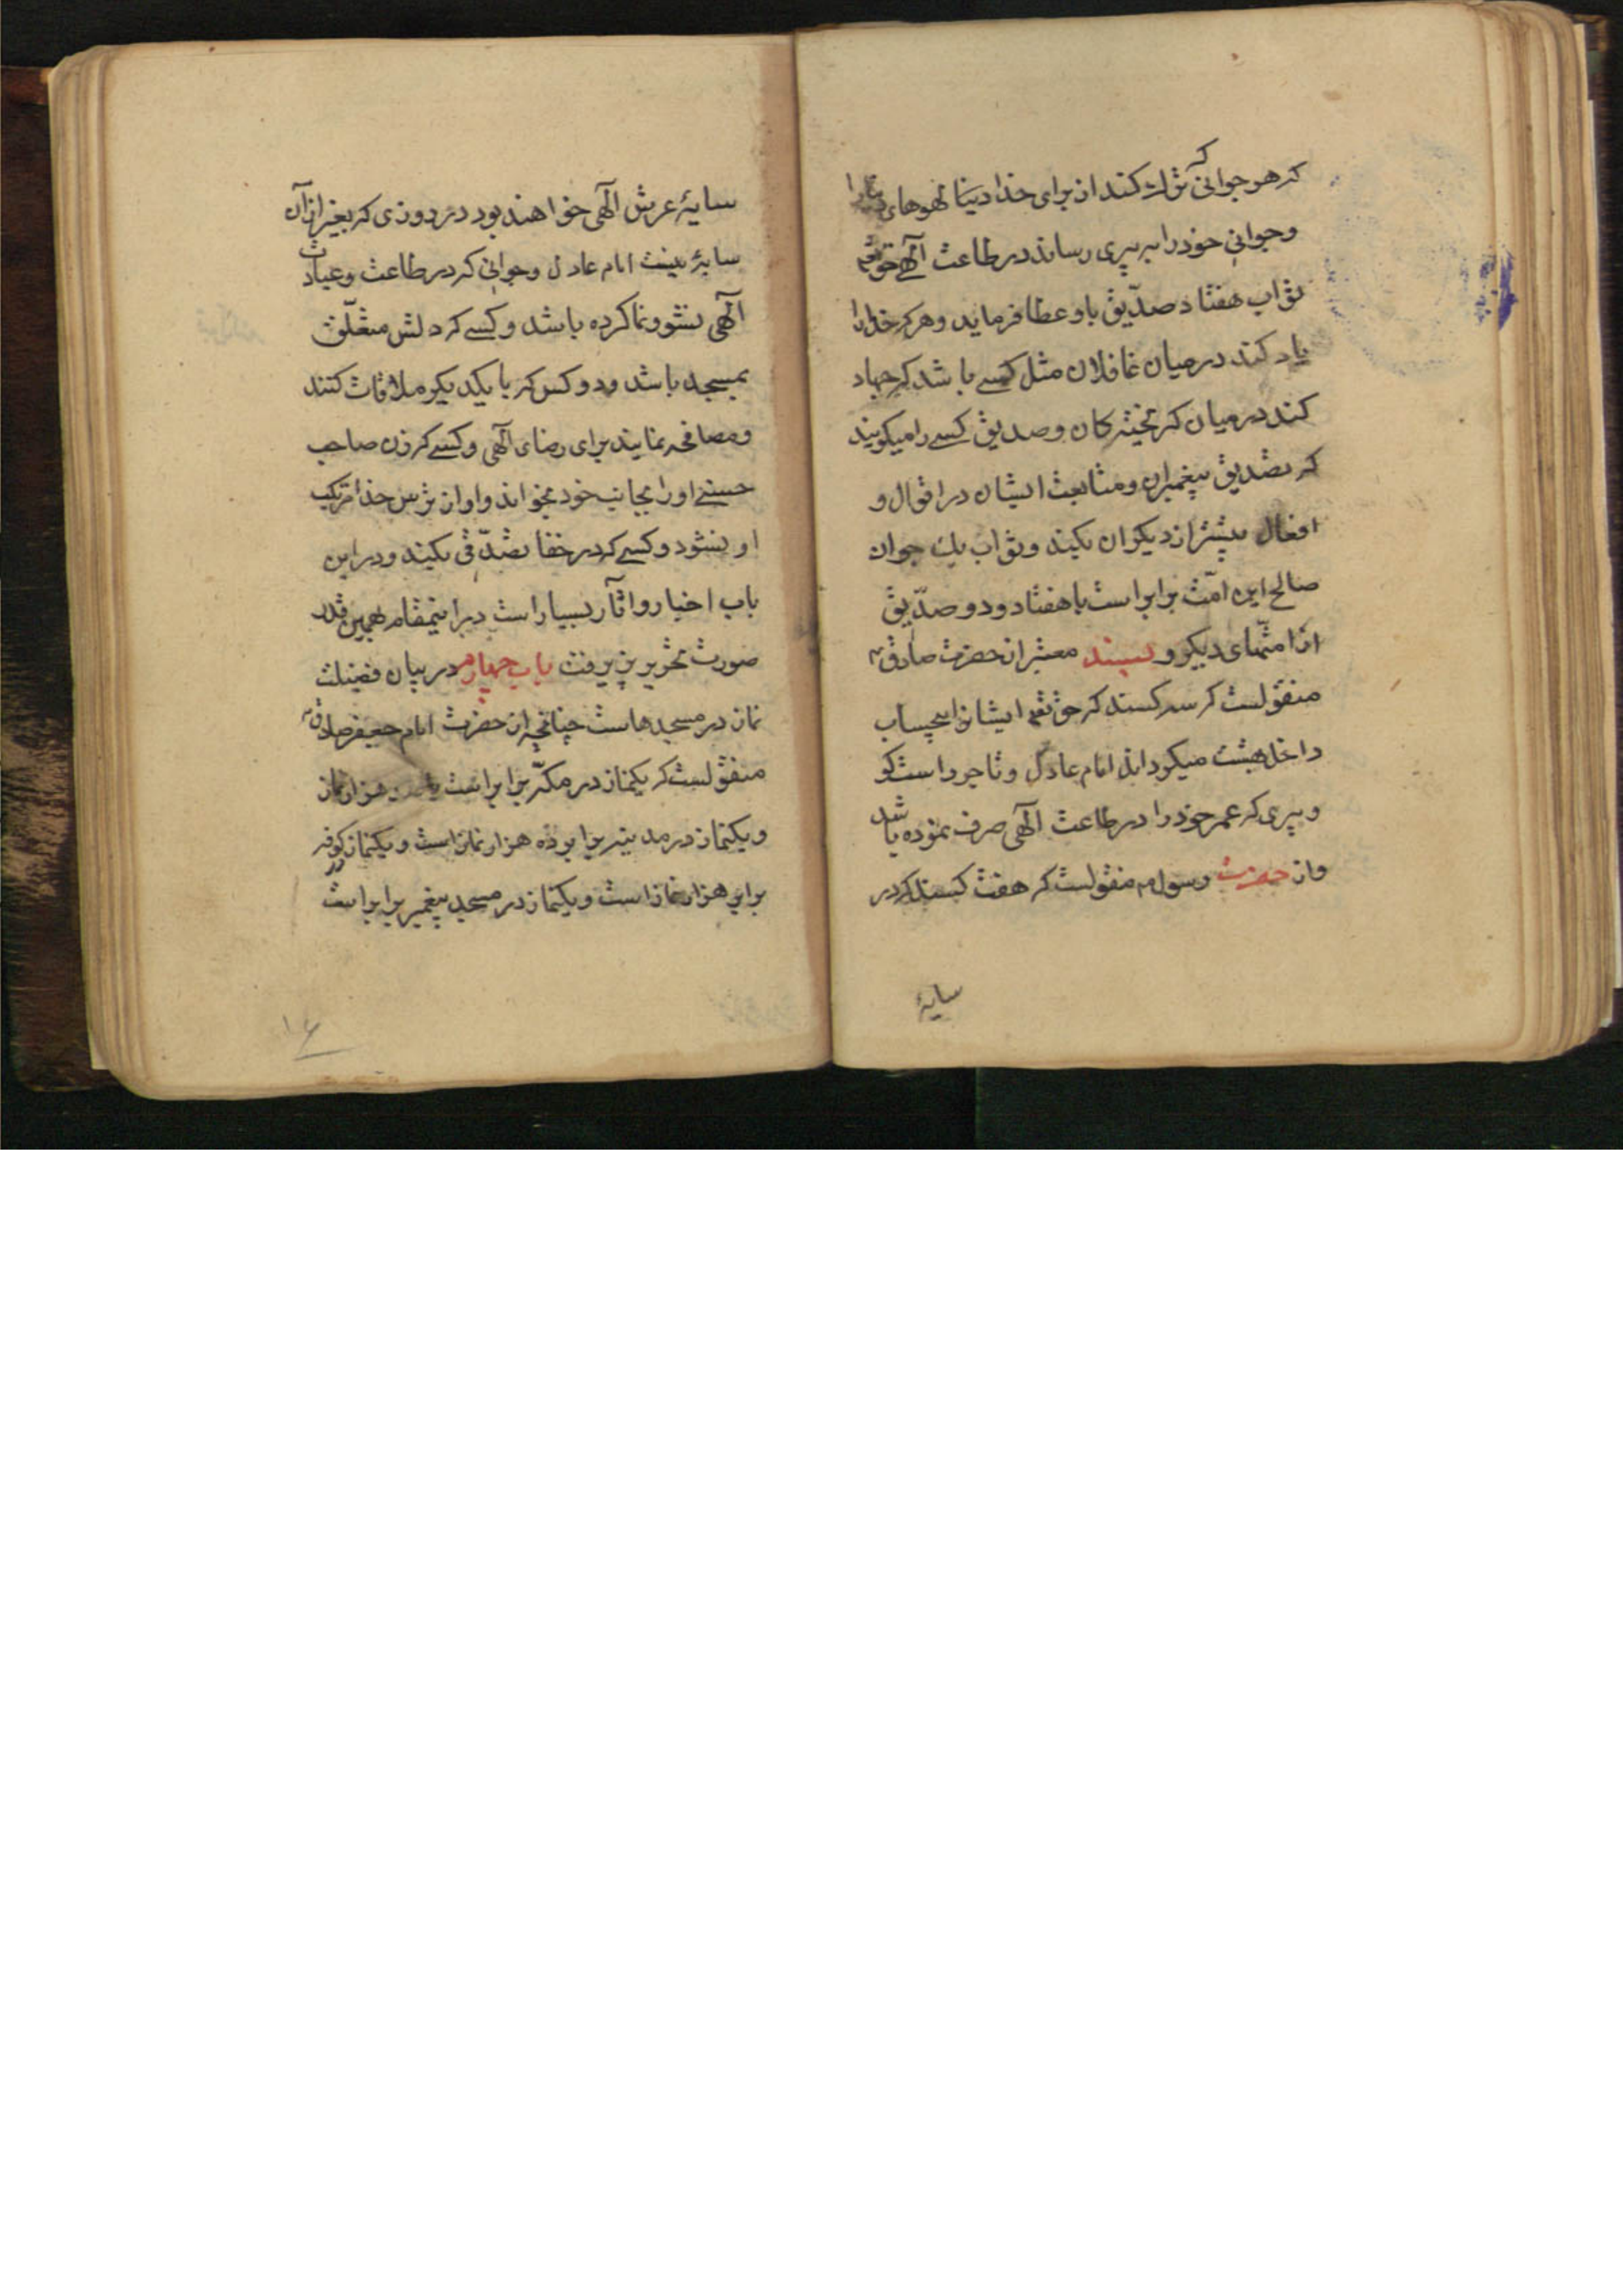 که هر جوانی که ترک کند از برای خدا دنیا و لهوهای دنیا را
و جوانی خود را به پیری رساند در طاعت الهی حق تعالی
ثواب هفتاد صدّیق باو عطا فرماید و هر که خدا را
یاد کند در میان غافلان مثل کسی باشد که جهاد
کند در میان کریختکان و صدیق کسی را میکویند
که تصدیق پیغمبران و متابعت ایشان در اقوال و
افعال بیشتر از دیکران بکند و ثواب یک جوان
صالح این امّت برابر است با هفتاد و دو صدّیق
از امتهای دیکر و بسند معتبر از حضرت صادق ع
منقولست که سه کسند که حق تعم ایشانرا بیحساب
داخل بهشت میکرداند امام عادل و تاجر راست کو
و پیری که عمر خود را در طاعت الهی صرف نموده باشد
و از حضرت رسول م منقولست که هفت کسند که در
سایهٔ
سایهٔ عرش الهی خواهند بود در روزی که بغیر از آن
سایهٔ نیست امام عادل و جوانی که در طاعت و عبادت
الهی نشو و نما کرده باشد و کسی که دلش متعلّق
بمسجد باشد و دو کس که با یکدیکر ملاقات کنند
و مصافحه نمایند برای رضای الهی و کسی که زن صاحب
حسنی او را بجانب خود بخواند و او از ترس خدا مرتکب
او نشود و کسی که در خفا تصدّقی بکند و در این
باب اخبار و اثآر بسیار است در اینمقام همین قدر
صورت تحریر پذیرفت باب چهارم در بیان فضیلت
نماز در مسجدهاست چنانچه از حضرت امام جعفر صادق ع
منقولست که یکنماز در مکّه برابر است با صد هزار نماز
و یکنماز در مدینه برابر ده هزار نماز است و یکنماز در کوفه
برابر هزار نماز است و یکنماز در مسجد پیغمبر برابر است
۱۶